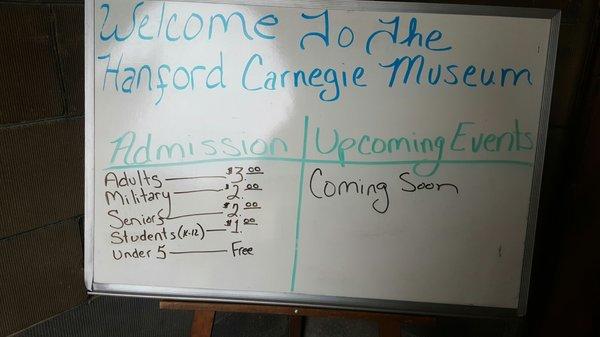 Welcome To The
Hanford Carnegie Museum
Admission
Adults $3.00
Military $2.00
Seniors $2.00
Students (K-12) $1.00
Under 5 Free
Upcoming Events
Coming Soon